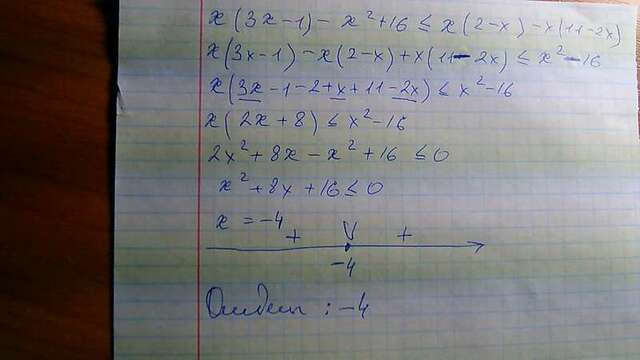 x(3x-1)-x²+16≤x(2-x)-x(11-2x)
x(3x-1)-x(2-x)+x(11-2x)≤x²-16
x(3x-1-2+x+11-2x)≤x²-16
x(2x+8)≤x²-16
2x²+8x-x²+16≤0
x²+8x+16≤0
x=-4
+ V +
-4
Ответ: -4